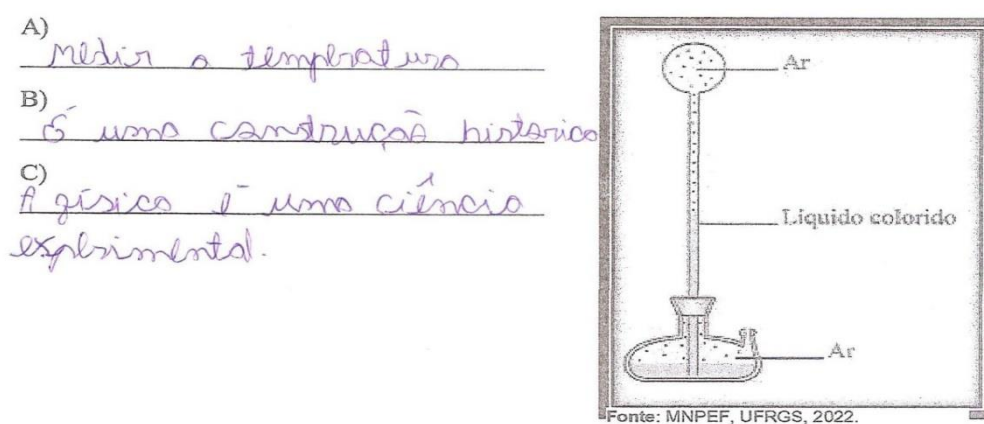 A)
Medir a temperatura
B)
É uma construção historica
C)
A física é uma ciência
experimental.
Ar
Líquido colorido
Ar
Fonte: MNPEF, UFRGS, 2022.